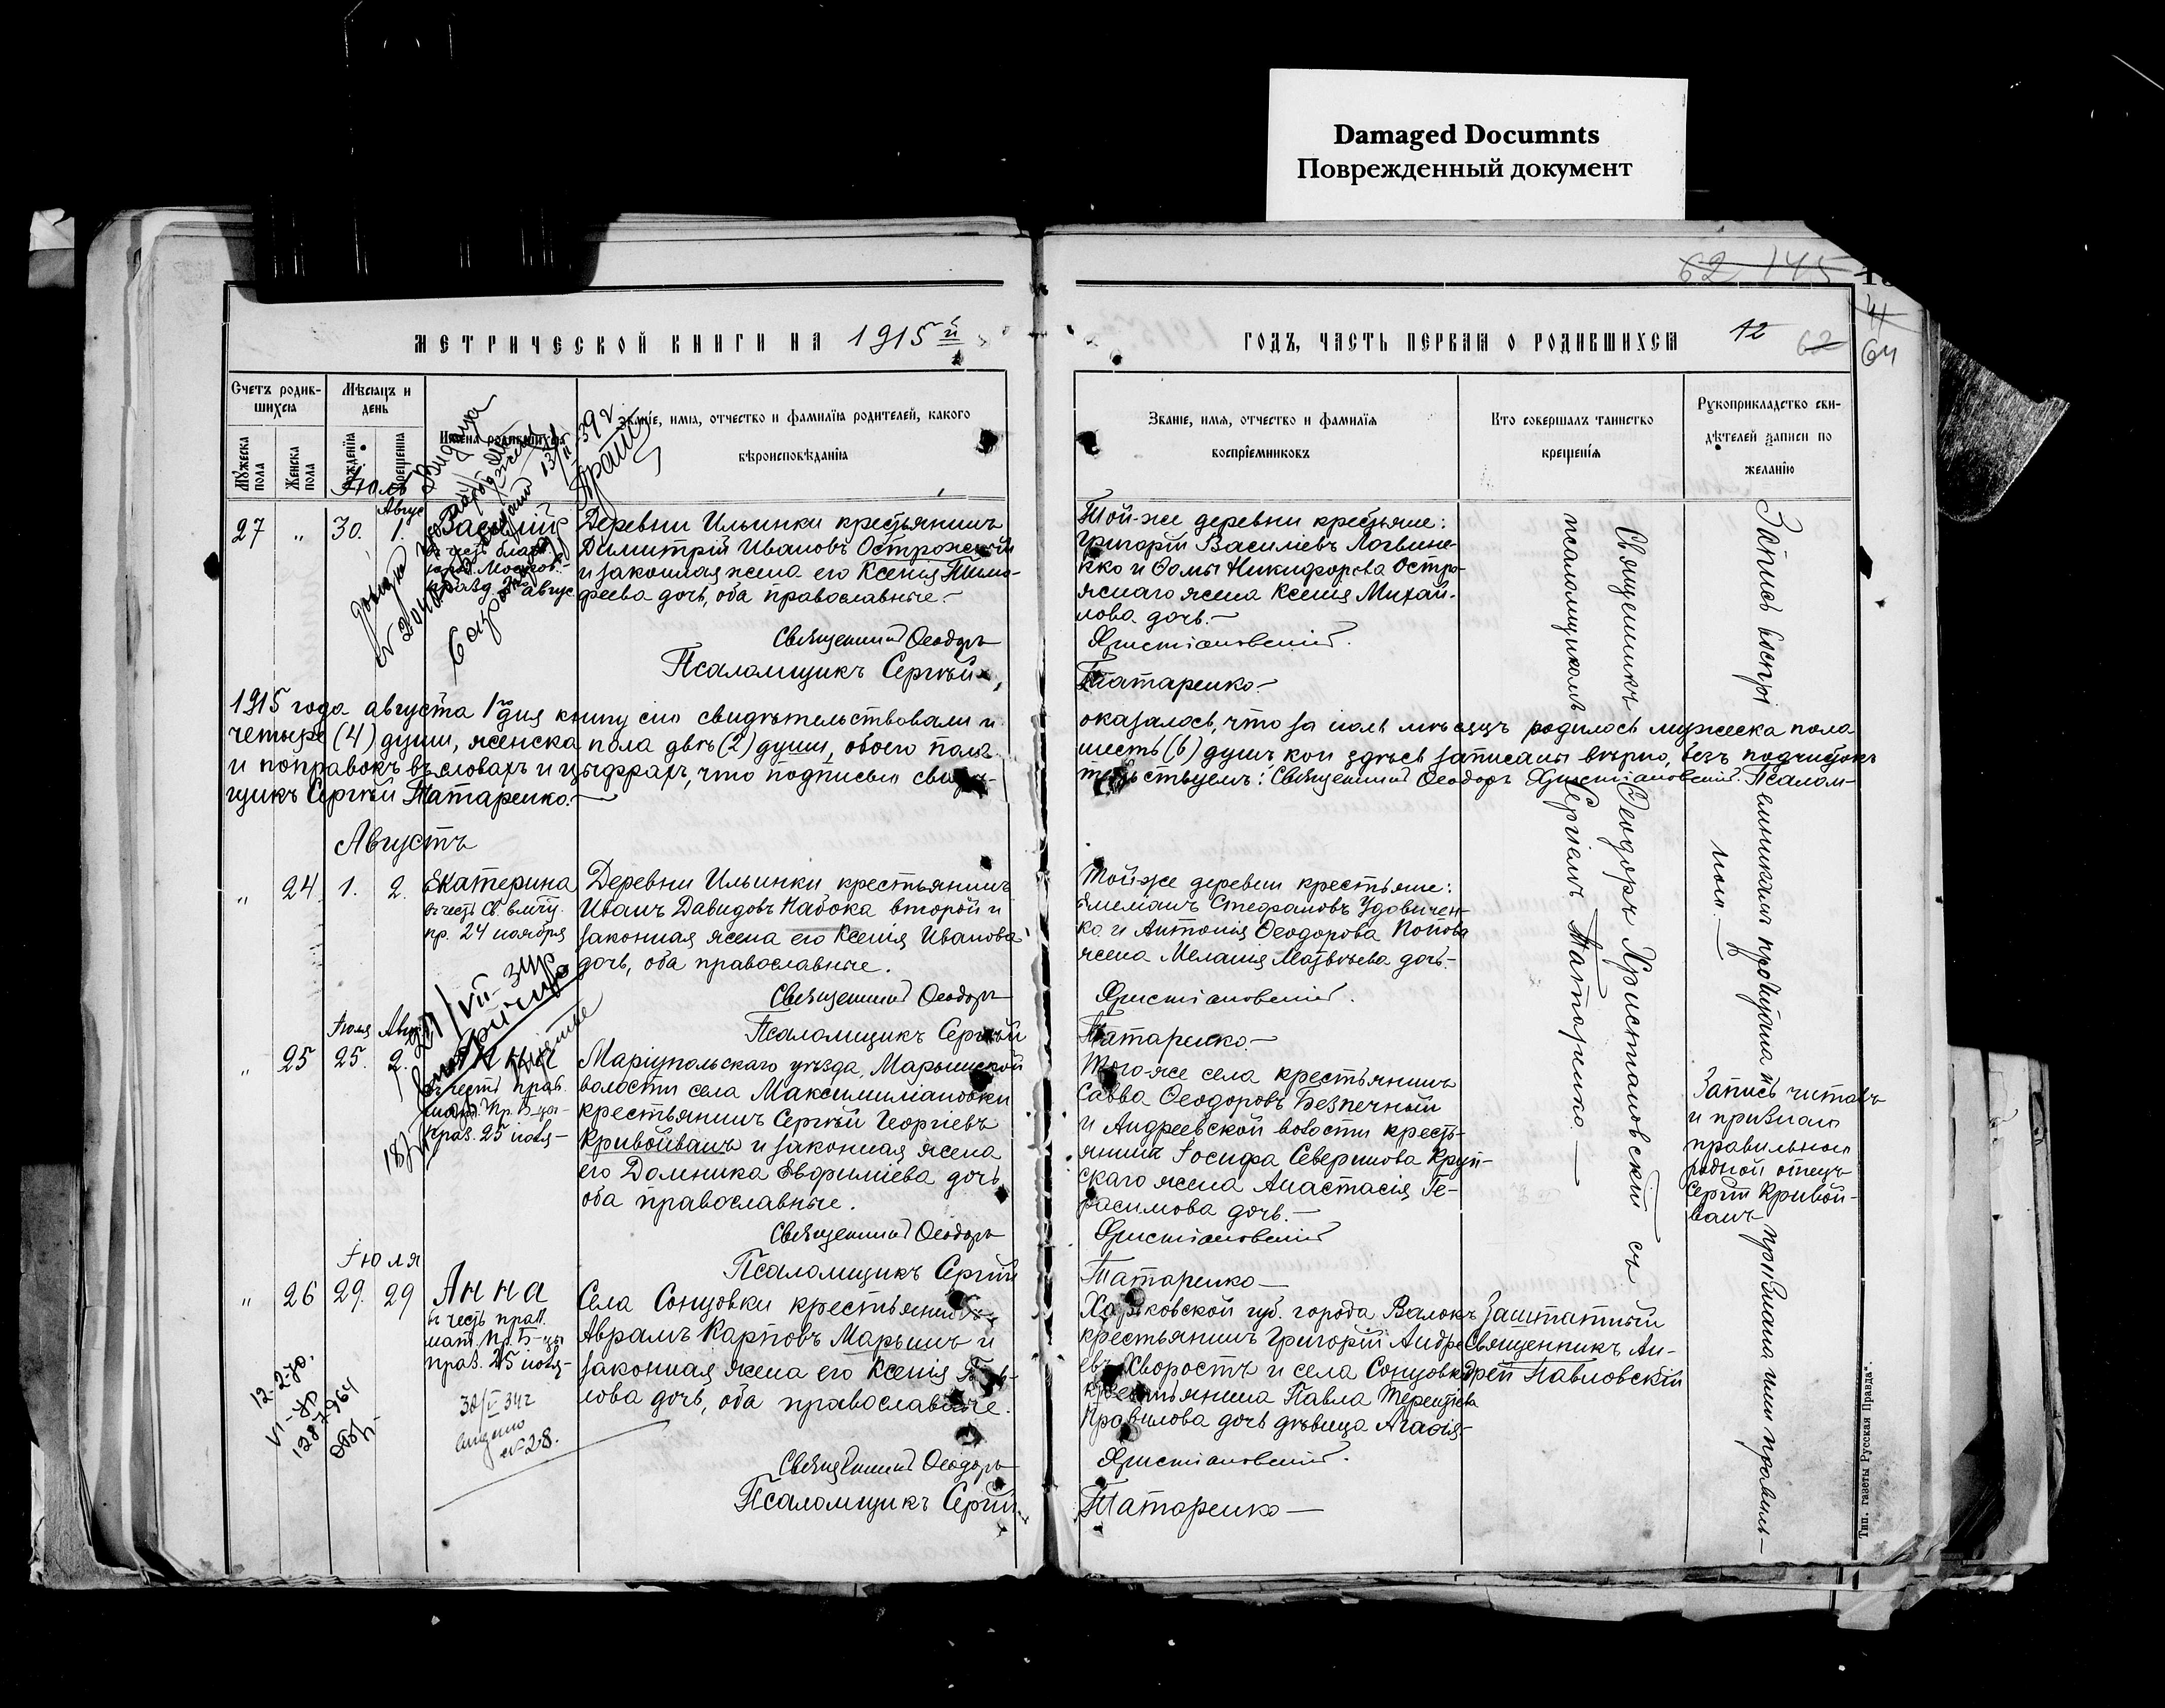 Damaged Documnts
Поврежденный документ
62 145
МЕТРИЧЕСКОЙ КНИГИ НА 1915й
ГОДЪ, ЧАСТЬ ПЕРВАЯ О РОДИВШИХСЯ
12
62
64
Счетъ родив-
шихся
Мѣсяцъ и
день
Имена родившихся
Званіе, имя, отчество и фамилія родителей, какого
вѣроисповѣданія
Мужеска
пола
Женска
пола
рожденія
крещенія
Званіе, имя, отчество и фамилія
воспріемниковъ
Кто совершалъ таинство
крещенія
Рукоприкладство сви-
дѣтелей записи по
желанію
Іюль
Авгус
27 „ 30. 1. Василій
въ честь блаж.
Москов.
празд. 2 авгус
Деревни Ильинки крестьянинъ
Димитрій Ивановъ Острожскій
и законная жена его Ксенія Тимо-
феева дочь, оба православные.
Священникъ Ѳеодоръ
Псаломщикъ Сергѣй
Той-же деревни крестьяне:
Григорій Василіевъ Логвине-
нко и Ѳомы Никифорова Остро-
жснаго жена Ксенія Михай-
лова дочь.
Христіановскій.
Татаренко.
1915 года августа 1го дня книгу сію свидѣтельствовали и
оказалось, что за іюль мѣсяцъ родилось мужеска пола
четыре (4) души, женска пола двѣ (2) души, обоего пола
шесть (6) душъ, кои здѣсь записаны вѣрно, безъ подчистокъ
и поправокъ въ словахъ и цыфрахъ, что подписью свидѣ-
тельствуемъ: Священникъ Ѳеодоръ Христіановскій. Псалом-
щикъ Сергѣй Татаренко.
Августъ
„ 24 1. 2. Екатерина
въ честь Св. влмчц.
пр. 24 ноября
Деревни Ильинки крестьянинъ
Иванъ Давидовъ Набока второй и
законная жена его Ксенія Иванова
дочь, оба православные.
Священникъ Ѳеодоръ
Псаломщикъ Сергѣй
Той-же деревни крестьяне:
Стефановъ Удовичен-
ко и Антонія Ѳеодорова Попова
жена Меланія Матвѣева дочь.
Христіановскій.
Татаренко.
Іюля Авг.
„ 25 25. 2. Анна
въ честь прав.
праз. 25 іюля
Маріупольскаго уѣзда, Марьинской
волости села Максимиліановки
крестьянинъ Сергѣй Георгіевъ
Кривойванъ и законная жена
его Домника Евфиміева дочь
оба православные.
Священникъ Ѳеодоръ
Псаломщикъ Сергій
Того-же села крестьянинъ
Савва Ѳеодоровъ Безпечный
и Андреевской волости кресть-
янина Іосифа Северинова Круп-
скаго жена Анастасія Ге-
расимова дочь.
Христіановскій
Татаренко
Запись читалъ
и призналъ
правильной
родной отецъ
Сергій Кривой-
ванъ
Іюля
„ 26 29. 29 Анна
въ честь прав.
мат. Пр. Б-цы
праз. 25 іюля
Села Сонцовки крестьянинъ
Аврамъ Карповъ Марьинъ и
законная жена его Ксенія Пав-
лова дочь, оба православные.
Священникъ Ѳеодоръ
Псаломщикъ Сергій
Харьковской губ. города Валокъ
крестьянинъ Григорій Андре-
евъ Хворостъ и села Сонцовки
крестьянина Павла Терентіева
дочь дѣвица Агафія
Христіановскій.
Татаренко
Заштатный
Священникъ Ан-
дрей Павловскій
Священникъ Ѳеодоръ Христіановскій съ
псаломщикомъ Сергіемъ Татаренко
Запись воспріемниками прочитана и признана ими правиль-
ной.
30/V 34г
выдано
№ 28.
12-2-70.
Тип. газеты „Русская Правда“.